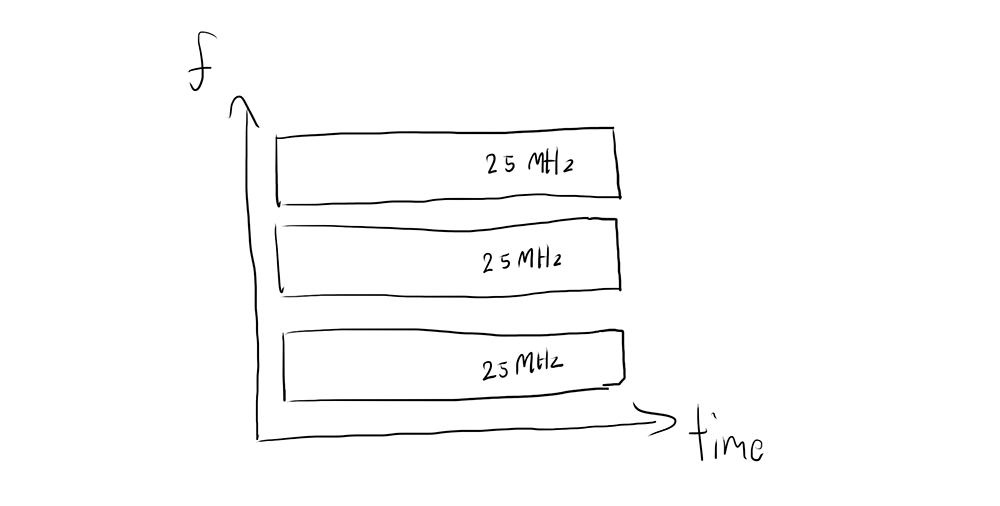 f
25 MHz
25 MHz
25 MHz
time